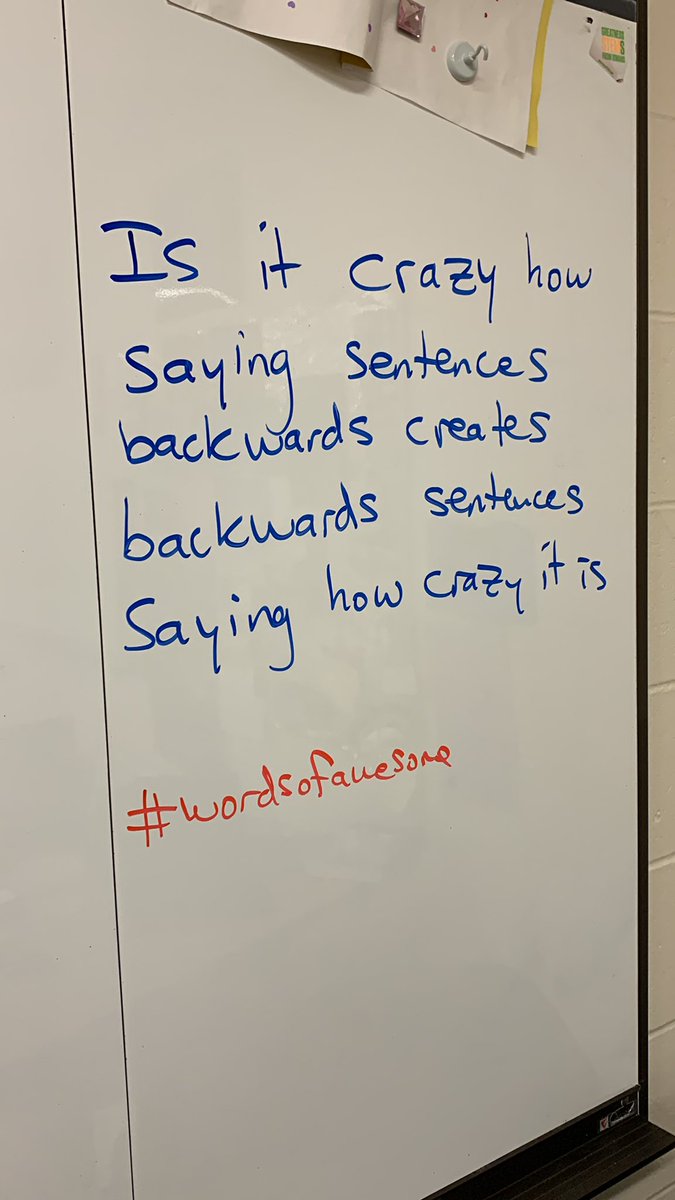 GREATNESS
STEMS
FROM
Is it crazy how
saying sentences
backwards creates
backwards sentences
saying how crazy it is
#wordsofawesome